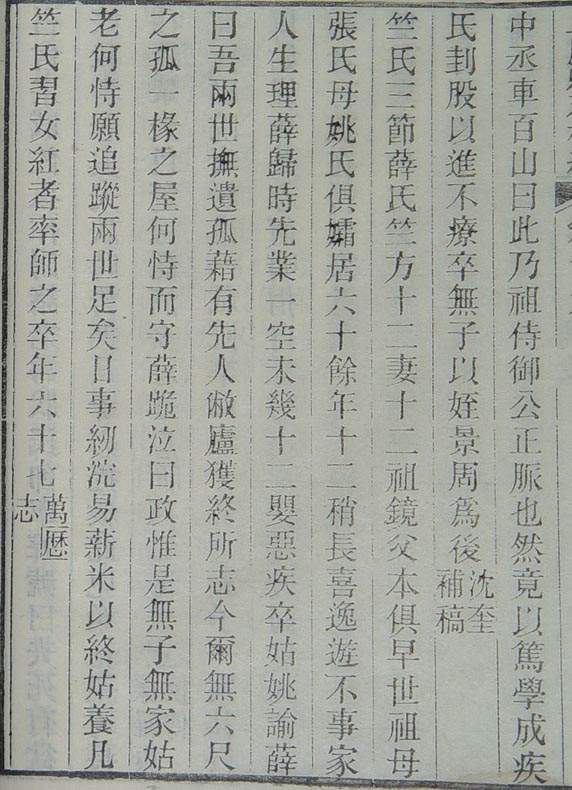 中丞車百山曰此乃祖侍御公正脈也然竟以篤學成疾
氏刲股以進不療卒無子以姪景周爲後沈奎補稿
竺氏三節薛氏竺方十二妻十二祖鏡父本俱早世祖母
張氏母姚氏俱孀居六十餘年十二稍長喜逸遊不事家
人生理薛歸時先業一空未幾十二嬰惡疾卒姑姚諭薛
曰吾兩世撫遺孤藉有先人敝廬獲終所志今爾無六尺
之孤一椽之屋何恃而守薛跪泣曰政惟是無子無家姑
老何恃願追蹤兩世足矣日事紉浣易薪米以終姑養凡
竺氏習女紅者率師之卒年六十七萬歷志